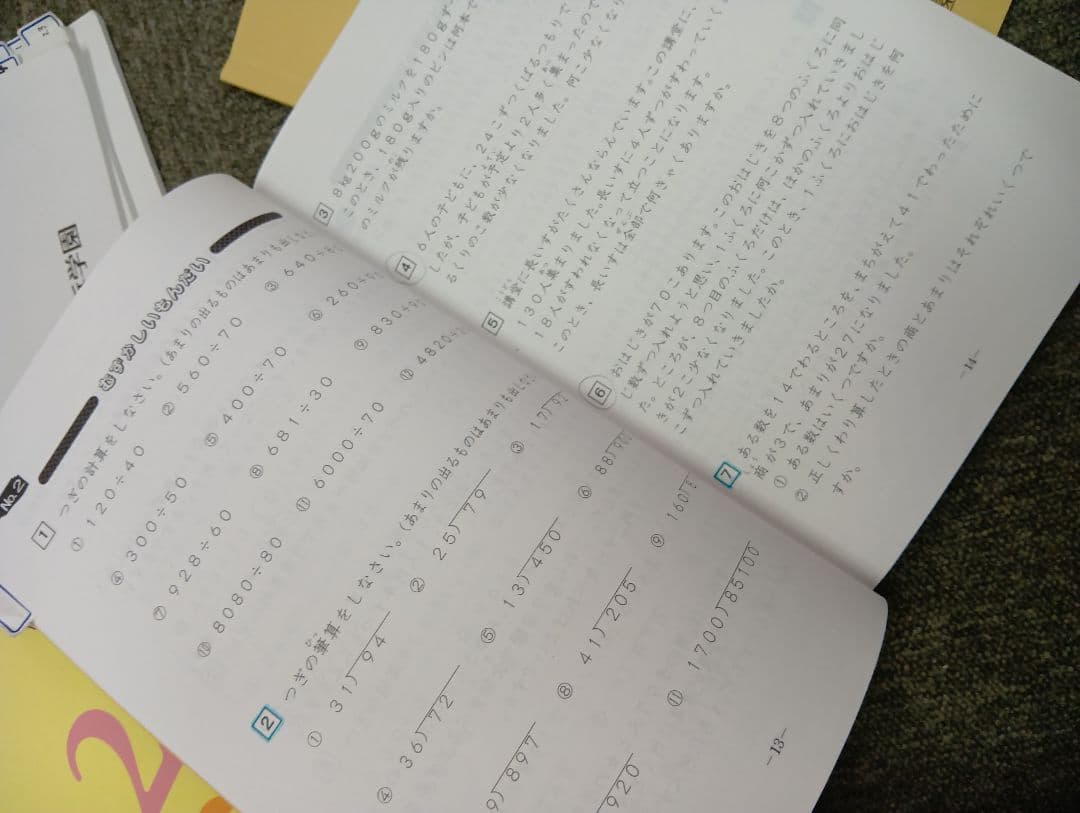 No.2
むずかしいもんだい
1 つぎの計算をしなさい。(あまりの出るものはあまりも出しな
① 120÷40
② 560÷70
③ 640÷
④ 300÷50
⑤ 400÷70
⑥ 260÷
⑦ 928÷60
⑧ 681÷30
⑨ 830÷
⑩ 8080÷80
⑪ 6000÷70
⑫ 4820÷
2 つぎの筆算をしなさい。(あまりの出るものはあまりも出しな
ひっ
① 31)94
② 25)79
③ 17)
④ 36)72
⑤ 13)450
⑥ 88)
9)897
⑧ 41)205
⑨ 160)
920
⑪ 1700)85100
—13—
3 8kg200gのミルクを180gず
このとき、180g入りのビンは何本で
のミルクが残りますか。
4 6人の子どもに、24こずつくばるつもりで
したが、子どもが予定より2人多く集まったので
るくりのこ数が少なくなりました。何こ少なくなり
5 講堂に長いすがたくさんならんでいます。この講堂に、
130人集まりました。長いすに4人ずつがすわっていく
18人がすわれなくなって立つことになります。
このとき、長いすは全部で何きゃくありますか。
6 おはじきが70こあります。このおはじきを8つのふくろに同
じ数ずつ入れようと思い、1ふくろに何こかずつ入れていきまし
た。ところが、8つ目のふくろだけは、ほかのふくろよりおはじ
きが2こ少なくなりました。このとき、1ふくろにおはじきを何
こずつ入れていきましたか。
7 ある数を14でわるところを、まちがえて41でわったために
商が3で、あまりが27になりました。
① ある数はいくつですか。
② 正しくわり算したときの商とあまりはそれぞれいくつで
すか。
—14—